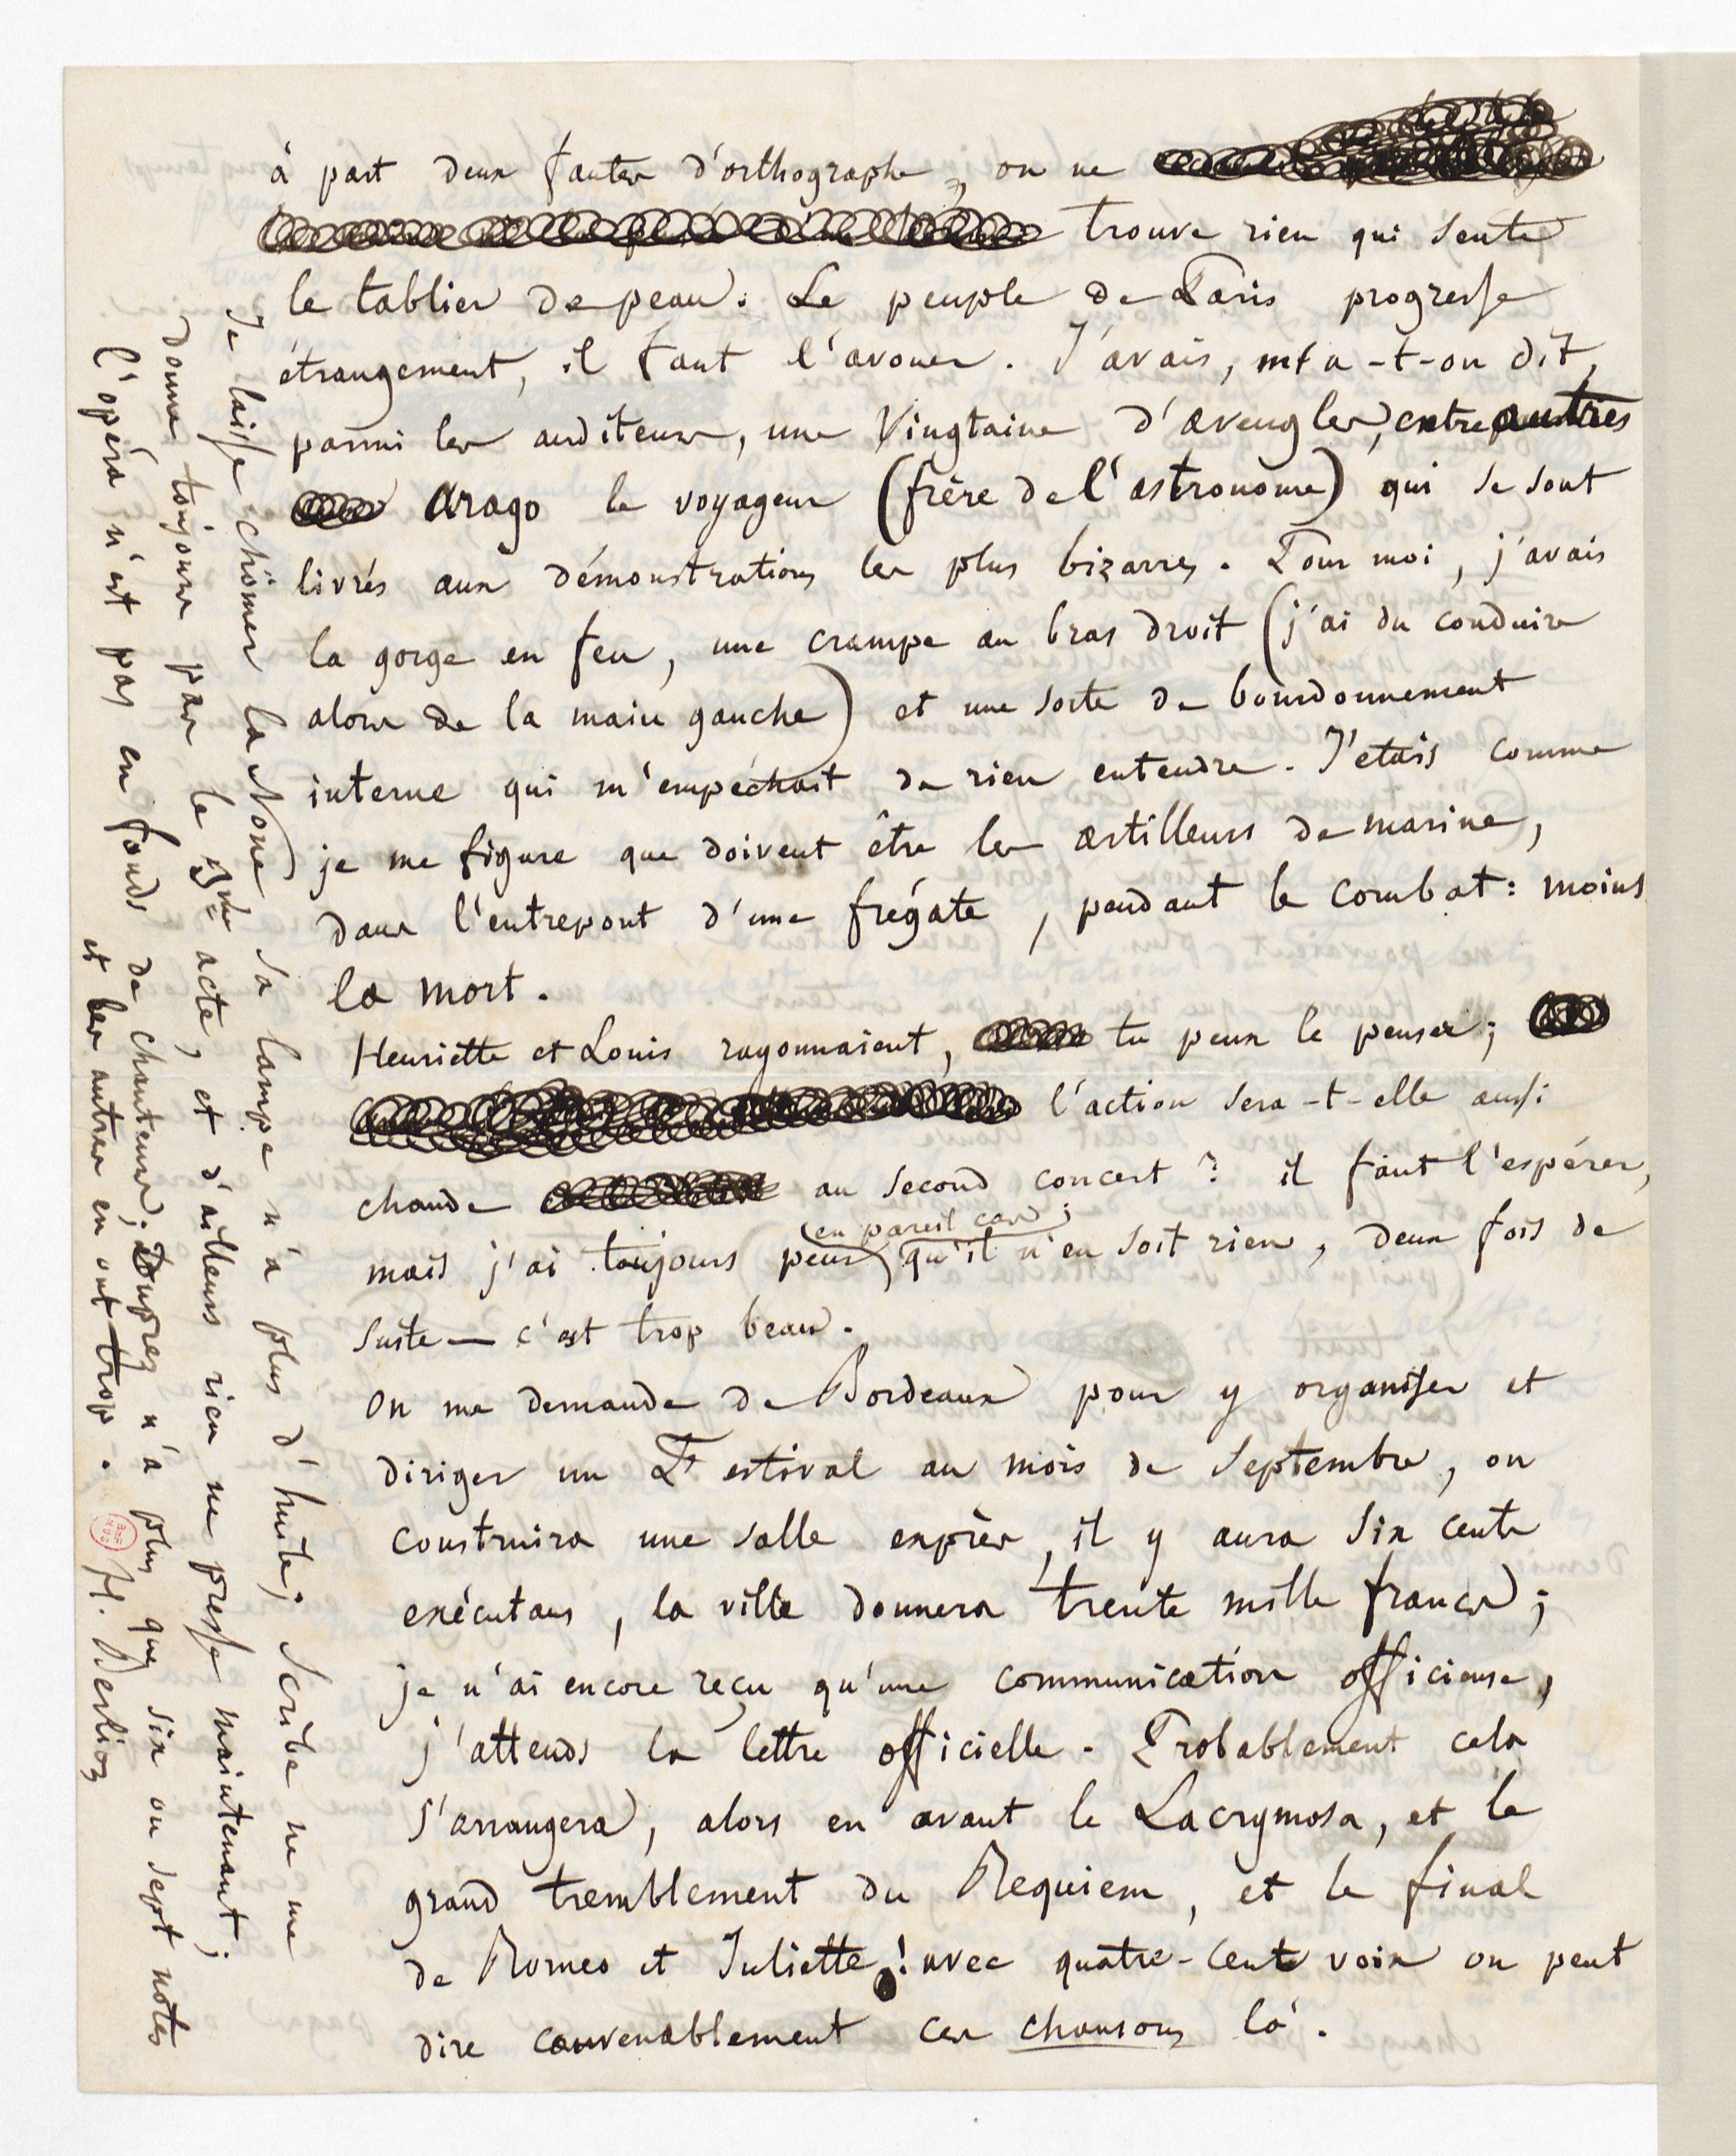 à part deux fautes d'orthographe, on ne
trouve rien qui sente
le tablier de peau. Le peuple de Paris progresse
étrangement, il faut l'avouer. J'avais, m'a-t-on dit,
parmi les auditeurs, une Vingtaine d'aveugles, entre autres
Arago le voyageur (frère de l'astronome) qui se sont
livrés aux démonstrations les plus bizarres. Pour moi, j'avais
la gorge en feu, une crampe au bras droit (j'ai du conduire
alors de la main gauche) et une sorte de bourdonnement
interne qui m'empéchait de rien entendre. J'etais comme
je me figure que doivent être les artilleurs de marine,
dans l'entrepont d'une frégate, pendant le combat: moins
la mort.
Henriette et Louis rayonnaient, tu peux le penser;
l'action sera-t-elle aussi
chaude au second concert? il faut l'espérer,
(en pareil cas)
mais j'ai toujours peur qu'il n'en soit rien, deux fois de
suite — c'est trop beau.
On me demande de Bordeaux pour y organiser et
diriger un Festival au mois de Septembre, on
construira une salle exprès, il y aura six cents
exécutans, la ville donnera trente mille francs;
je n'ai encore reçu qu'une communication officieuse,
j'attends la lettre officielle. Probablement cela
s'arrangera, alors en avant le Lacrymosa, et le
grand tremblement du Requiem, et le final
de Romeo et Juliette! avec quatre-cents voix on peut
dire convenablement ces chansons là.
Je laisse chômer la None sa lampe n'a plus d'huile; Scribe ne me
donne toujours pas le 3me acte, et d'ailleurs rien ne presse maintenant;
l'opéra n'est pas en fonds de chanteurs; Duprez n'a plus que six ou sept notes
et les autres en ont trop. H. Berlioz